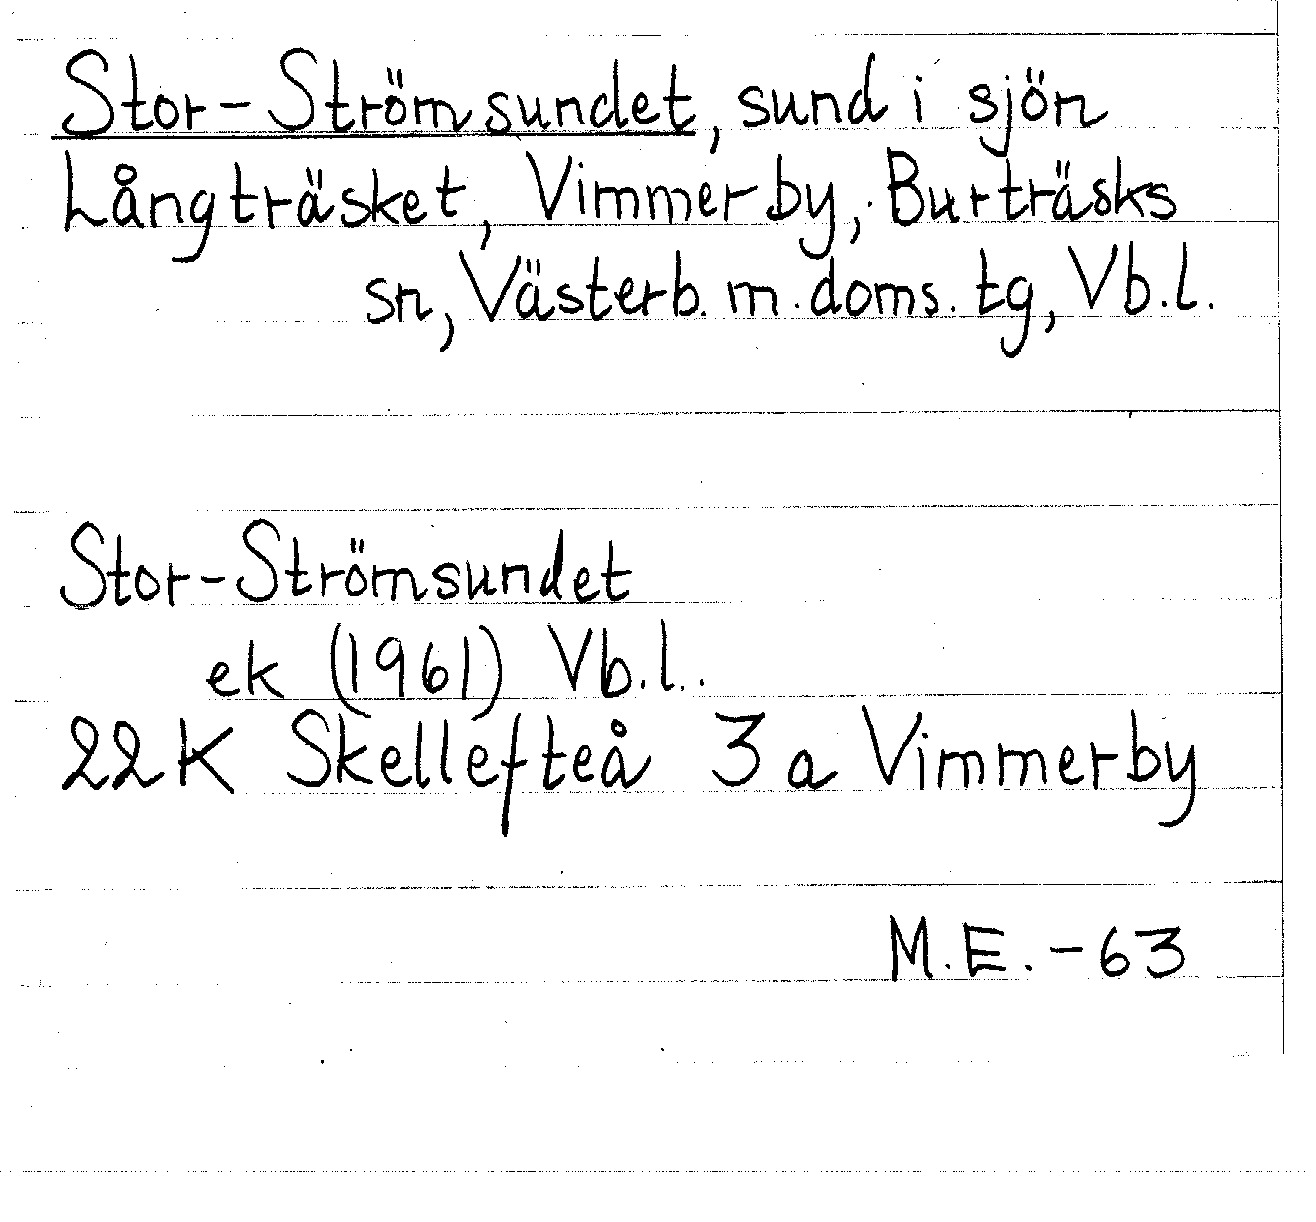 Stor-Strömsundet, sund i sjön
Långträsket, Vimmerby, Burträsks
sn, Västerb. m. doms. tg, Vb.l.
Stor-Strömsundet
ek (1961) Vb.l.
22K Skellefteå 3a Vimmerby
M.E.-63